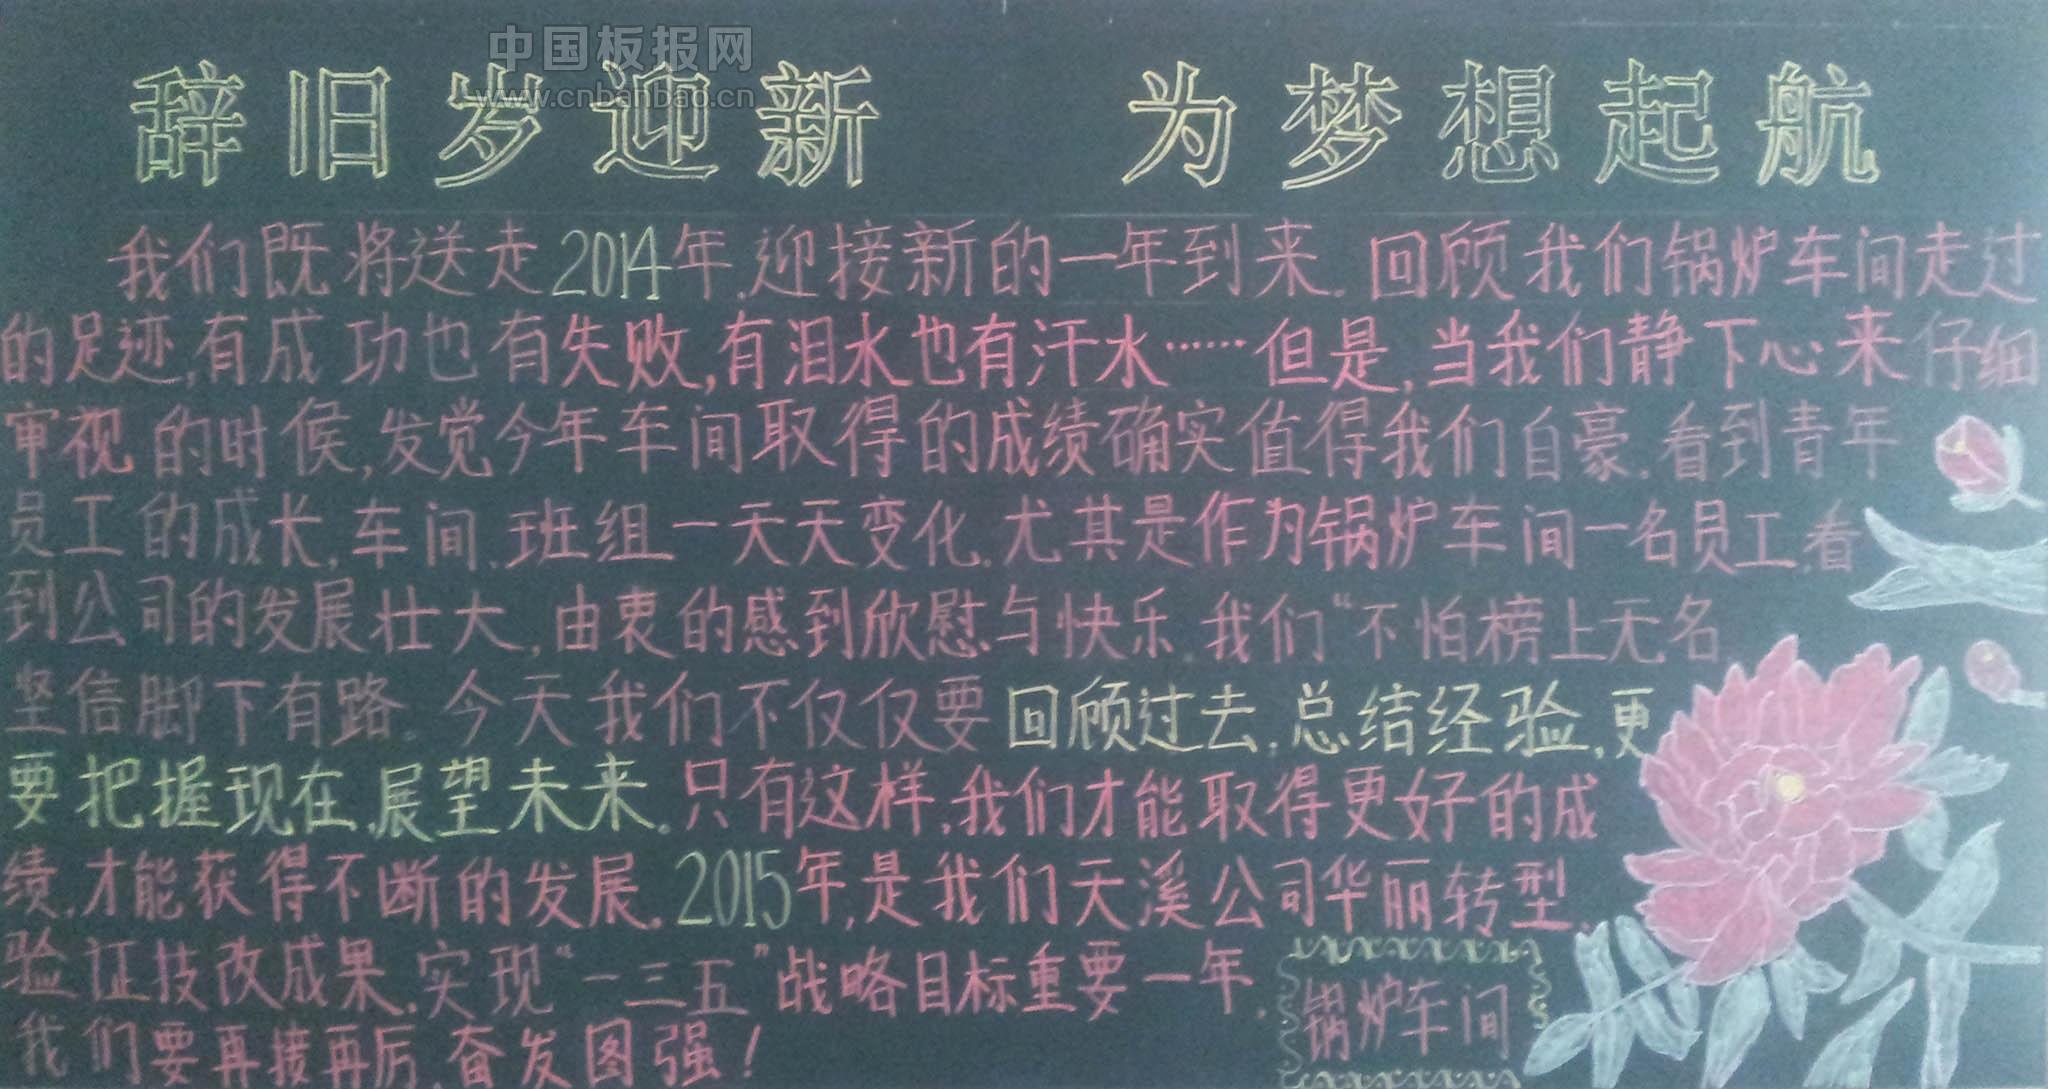 中国板报网
www.cnbanbao.cn
辞旧岁迎新 为梦想起航
我们既将送走2014年,迎接新的一年到来。回顾我们锅炉车间走过
的足迹,有成功也有失败,有泪水也有汗水……但是,当我们静下心来仔细
审视的时候,发觉今年车间取得的成绩确实值得我们自豪。看到青年
员工的成长,车间、班组一天天变化。尤其是作为锅炉车间一名员工,看
到公司的发展壮大,由衷的感到欣慰与快乐。我们“不怕榜上无名
坚信脚下有路。今天我们不仅仅要回顾过去,总结经验,更
要把握现在,展望未来。只有这样,我们才能取得更好的成
绩,才能获得不断的发展。2015年,是我们天溪公司华丽转型,
验证技改成果,实现“一三五”战略目标重要一年,
我们要再接再厉,奋发图强!
锅炉车间